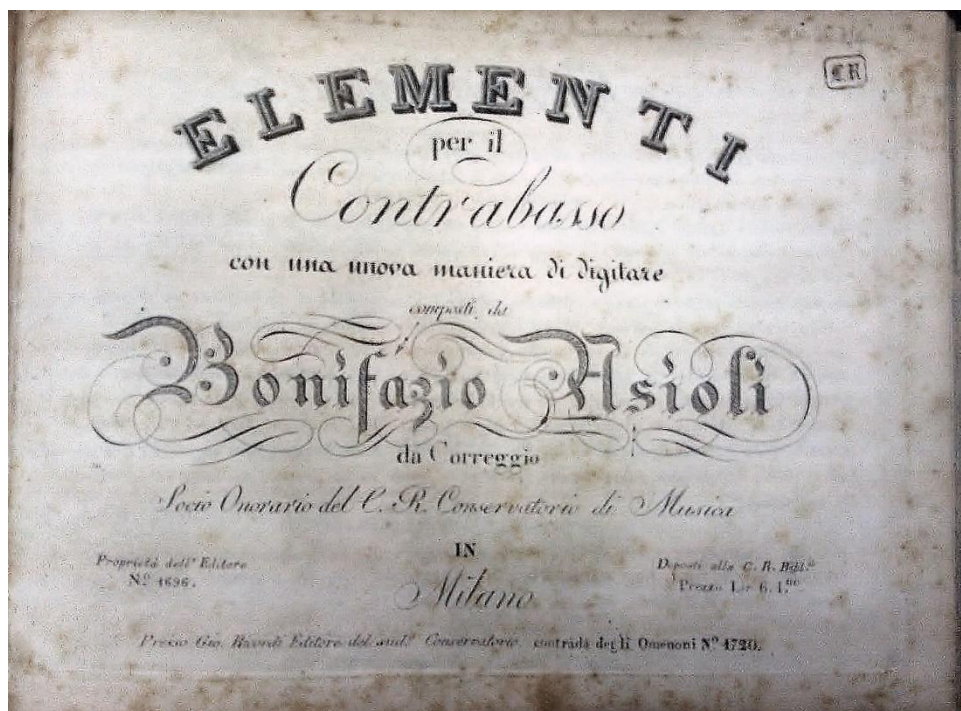 CR
ELEMENTI
per il
Contrabasso
con una nuova maniera di digitare
composti da
Bonifazio Asioli
da Correggio
Socio Onorario del C. R. Conservatorio di Musica
IN
Milano
Proprietà dell' Editore
Nº 1696.
Deposti alla C. R. Bibl.ª
Prezzo Lir. 6. I.ne
Presso Gio. Ricordi Editore del sud.º Conservatorio, contrada degli Omenoni Nº 1720.